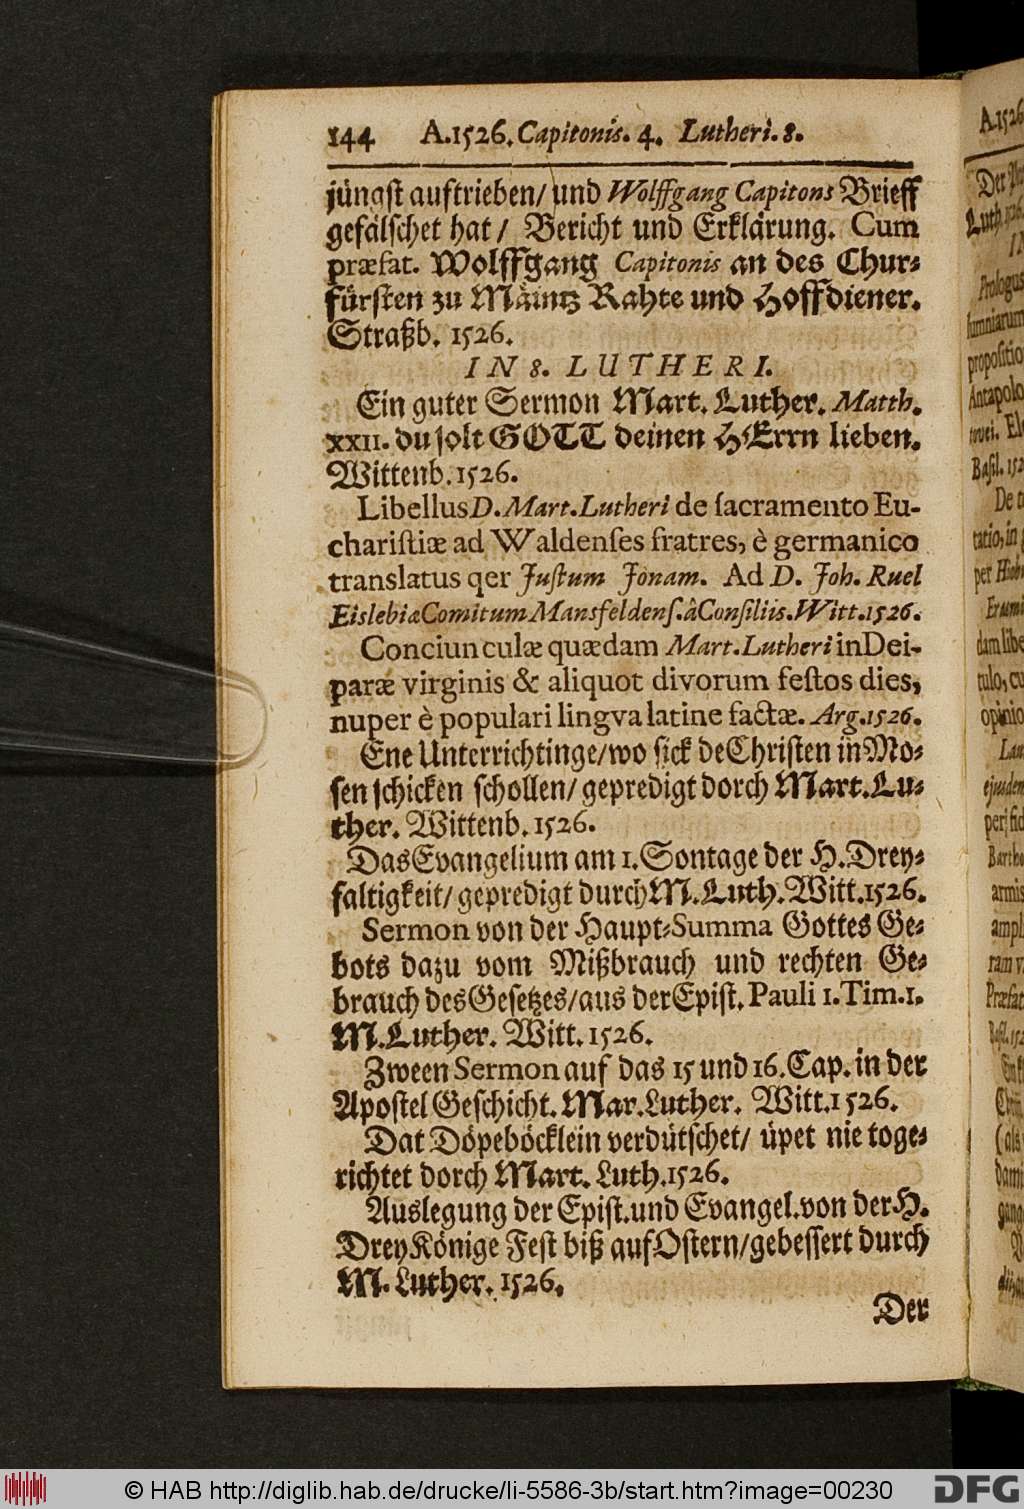 144 A.1526. Capitonis. 4. Lutheri. 8.
jüngst auftrieben/ und Wolffgang Capitons Brieff
gefälschet hat/ Bericht und Erklärung. Cum
præfat. Wolffgang Capitonis an des Chur-
fürsten zu Mäintz Rahte und Hoffdiener.
Straßb. 1526.
IN 8. LUTHERI.
Ein guter Sermon Mart. Luther. Matth.
XXII. du solt GOTT deinen HErrn lieben.
Wittenb. 1526.
Libellus D. Mart. Lutheri de sacramento Eu-
charistiæ ad Waldenses fratres, è germanico
translatus qer Justum Jonam. Ad D. Joh. Ruel
Eislebiæ Comitum Mansfeldens. â Consiliis. Witt. 1526.
Conciunculæ quædam Mart. Lutheri in Dei-
paræ virginis & aliquot divorum festos dies,
nuper è populari lingva latine factæ. Arg. 1526.
Ene Unterrichtinge/ wo sick de Christen in Mo-
sen schicken schollen/ gepredigt dorch Mart. Lu-
ther. Wittenb. 1526.
Das Evangelium am 1. Sontage der H. Drey-
faltigkeit/ gepredigt durch M. Luth. Witt. 1526.
Sermon von der Haupt-Summa Gottes Ge-
bots dazu vom Mißbrauch und rechten Ge-
brauch des Gesetzes/ aus der Epist. Pauli 1. Tim. 1.
M. Luther. Witt. 1526.
Zween Sermon auf das 15 und 16. Cap. in der
Apostel Geschicht. Mar. Luther. Witt. 1526.
Dat Döpeböcklein verdütschet/ üpet nie toge-
richtet dorch Mart. Luth. 1526.
Auslegung der Epist. und Evangel. von der H.
Drey Könige Fest biß auf Ostern/ gebessert durch
M. Luther. 1526.
Der
© HAB http://diglib.hab.de/drucke/li-5586-3b/start.htm?image=00230
DFG